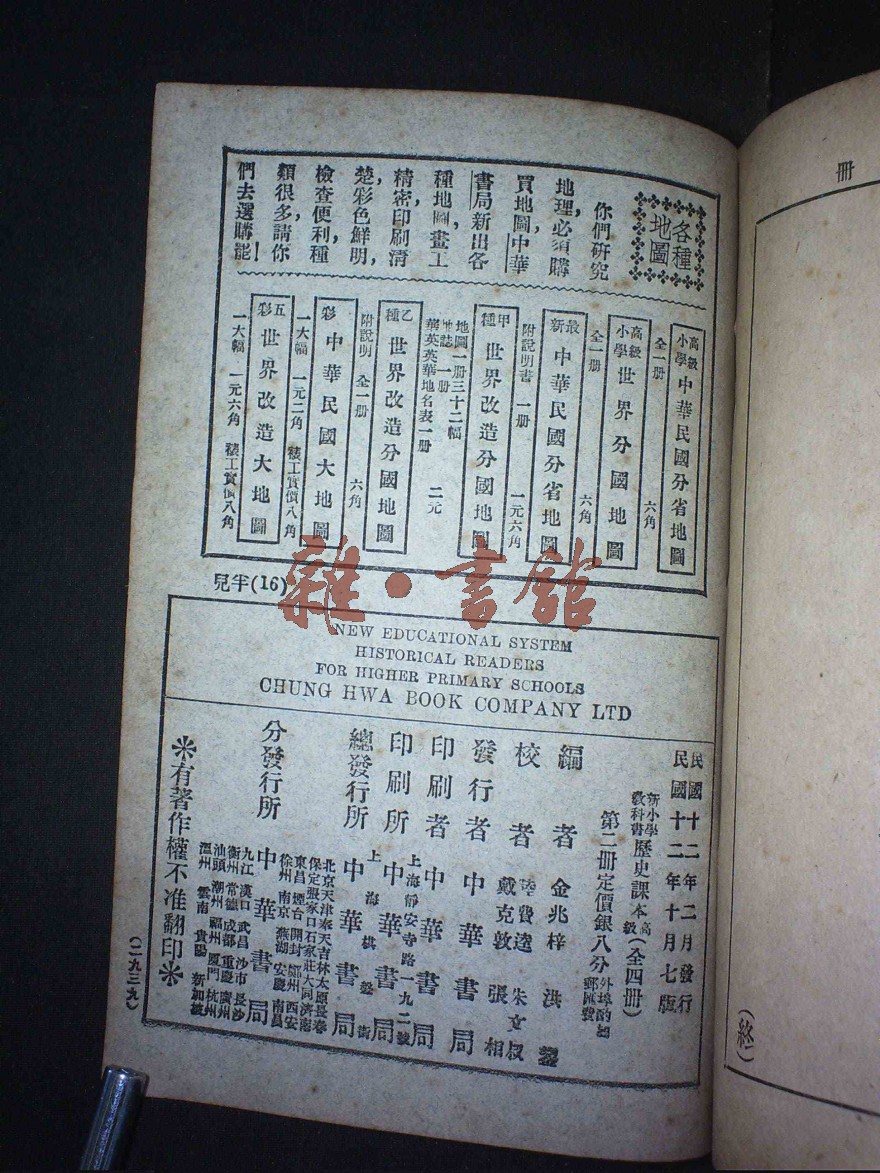 冊
(終)
各種
地圖
你們研究
地理必須購
買地圖中華
書局新出各
種地圖,畫工
精密,印刷清
楚,彩色鮮明,
檢查便利,種
類很多,請你
們去選購罷—
高級小學 中華民國分省地圖
全一冊 六角
高級小學 世界分國地圖
全一冊 六角
最新 中華民國分省地圖
附說明書 一冊 一元六角
甲種 世界改造分國地圖
地圖一冊三十二幅
地誌一冊
華英英華地名表一冊 二元
乙種 世界改造分國地圖
附說明 全一冊 六角
彩 中華民國大地圖
一大幅 一元二角 裱工實價八角
五彩 世界改造大地圖
一大幅 一元六角 裱工實價八角
雜·書館
兒半(16)
NEW EDUCATIONAL SYSTEM
HISTORICAL READERS
FOR HIGHER PRIMARY SCHOOLS
CHUNG HWA BOOK COMPANY LTD
民國十二年二月發行
民國十二年十月七版
新小學教科書 歷史課本 高級 (全四冊)
第二冊定價銀八分
外埠酌加郵匯費
編者 金兆梓 洪鋆
校者 陸費逵 朱文叔
戴克敦 張相
發行者 中華書局
印刷者 中華書局
上海靜安寺路一九二號
印刷所 中華書局
上海棋盤街
總發行所 中華書局
北京天津奉天吉林太原長春
保定張家口石家莊大同濟南
東昌 煙台 開封 鄭州 西安
徐州 南京 蕪湖 安慶 南昌
分發行所 中華書局
九江 漢口 武昌 沙市 長沙
衡州 常德 成都 重慶 廣州
汕頭 潮州 福州 厦門 杭州
溫州 雲南 貴陽 新加坡
※有著作權不准翻印※
(二九三九)